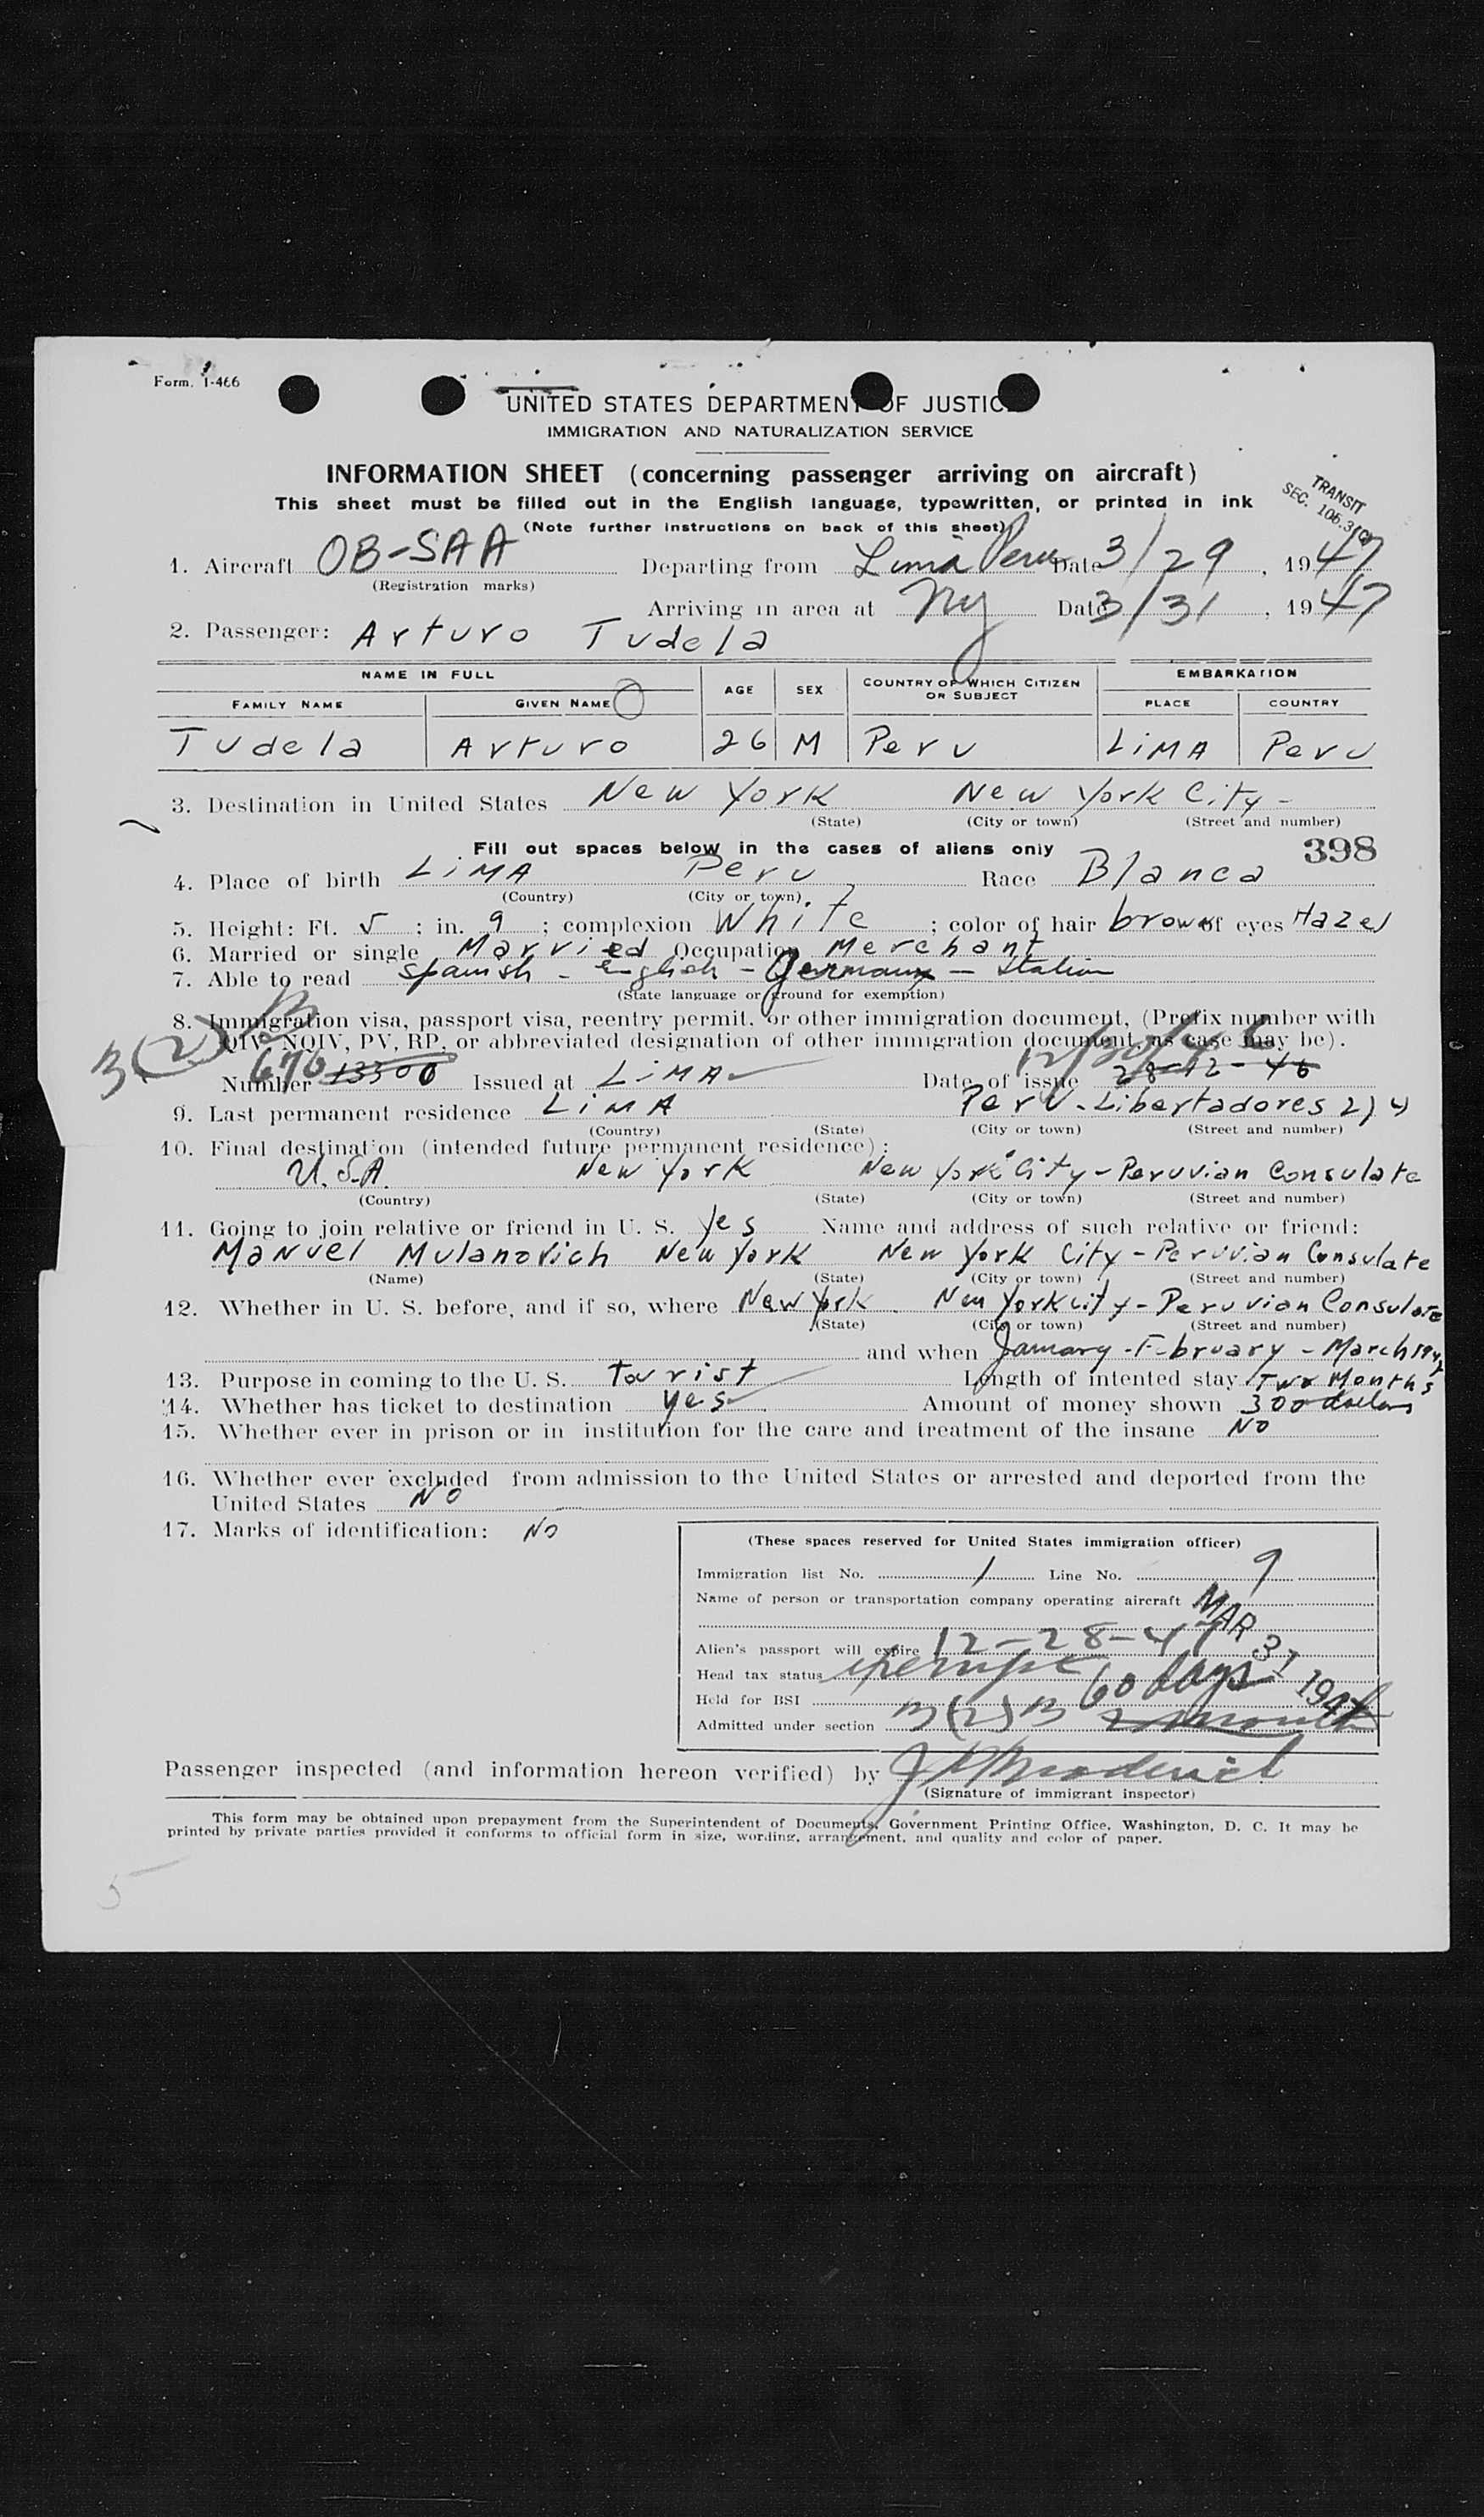 Form. I-466
UNITED STATES DEPARTMENT OF JUSTICE
IMMIGRATION AND NATURALIZATION SERVICE
INFORMATION SHEET (concerning passenger arriving on aircraft)
This sheet must be filled out in the English language, typewritten, or printed in ink
(Note further instructions on back of this sheet)
TRANSIT
SEC. 106.3
1. Aircraft OB-SAA Departing from Lima Peru Date 3/29, 1947
(Registration marks)
Arriving in area at NY Date 3/31, 1947
2. Passenger: Arturo Tudela
NAME IN FULL AGE SEX COUNTRY OF WHICH CITIZEN OR SUBJECT EMBARKATION
FAMILY NAME GIVEN NAME PLACE COUNTRY
Tudela Arturo 26 M Peru LiMA Peru
3. Destination in United States New York New York City -
(State) (City or town) (Street and number)
Fill out spaces below in the cases of aliens only 398
4. Place of birth LiMA Peru Race Blanca
(Country) (City or town)
5. Height: Ft. 5 : in. 9 ; complexion White ; color of hair brown of eyes Hazel
6. Married or single Married Occupation Merchant
7. Able to read Spanish - English - Germany - Italian
(State language or ground for exemption)
8. Immigration visa, passport visa, reentry permit, or other immigration document, (Prefix number with
3(2)B QIV, NQIV, PV, RP, or abbreviated designation of other immigration document, as case may be).
Number 670 13300 Issued at LiMA Date of issue 28-12-46
9. Last permanent residence LiMA Peru - Libertadores 214
(Country) (State) (City or town) (Street and number)
10. Final destination (intended future permanent residence):
U.S.A. New York New York City - Peruvian Consulate
(Country) (State) (City or town) (Street and number)
11. Going to join relative or friend in U. S. Yes Name and address of such relative or friend:
Manuel Mulanovich New York New York City - Peruvian Consulate
(Name) (State) (City or town) (Street and number)
12. Whether in U. S. before, and if so, where New York New York City - Peruvian Consulate
(State) (City or town) (Street and number)
and when January - February - March
13. Purpose in coming to the U. S. Tourist Length of intented stay Two Months
14. Whether has ticket to destination Yes Amount of money shown 300 dollars
15. Whether ever in prison or in institution for the care and treatment of the insane No
16. Whether ever excluded from admission to the United States or arrested and deported from the
United States No
17. Marks of identification: No
(These spaces reserved for United States immigration officer)
Immigration list No. 1 Line No. 9
Name of person or transportation company operating aircraft
MAR 31 1947
Alien's passport will expire 12-28-47
Head tax status exempt
Held for BSI 60 days
Admitted under section 3(2)B
Passenger inspected (and information hereon verified) by
(Signature of immigrant inspector)
This form may be obtained upon prepayment from the Superintendent of Documents, Government Printing Office, Washington, D. C. It may be
printed by private parties provided it conforms to official form in size, wording, arrangement, and quality and color of paper.
5